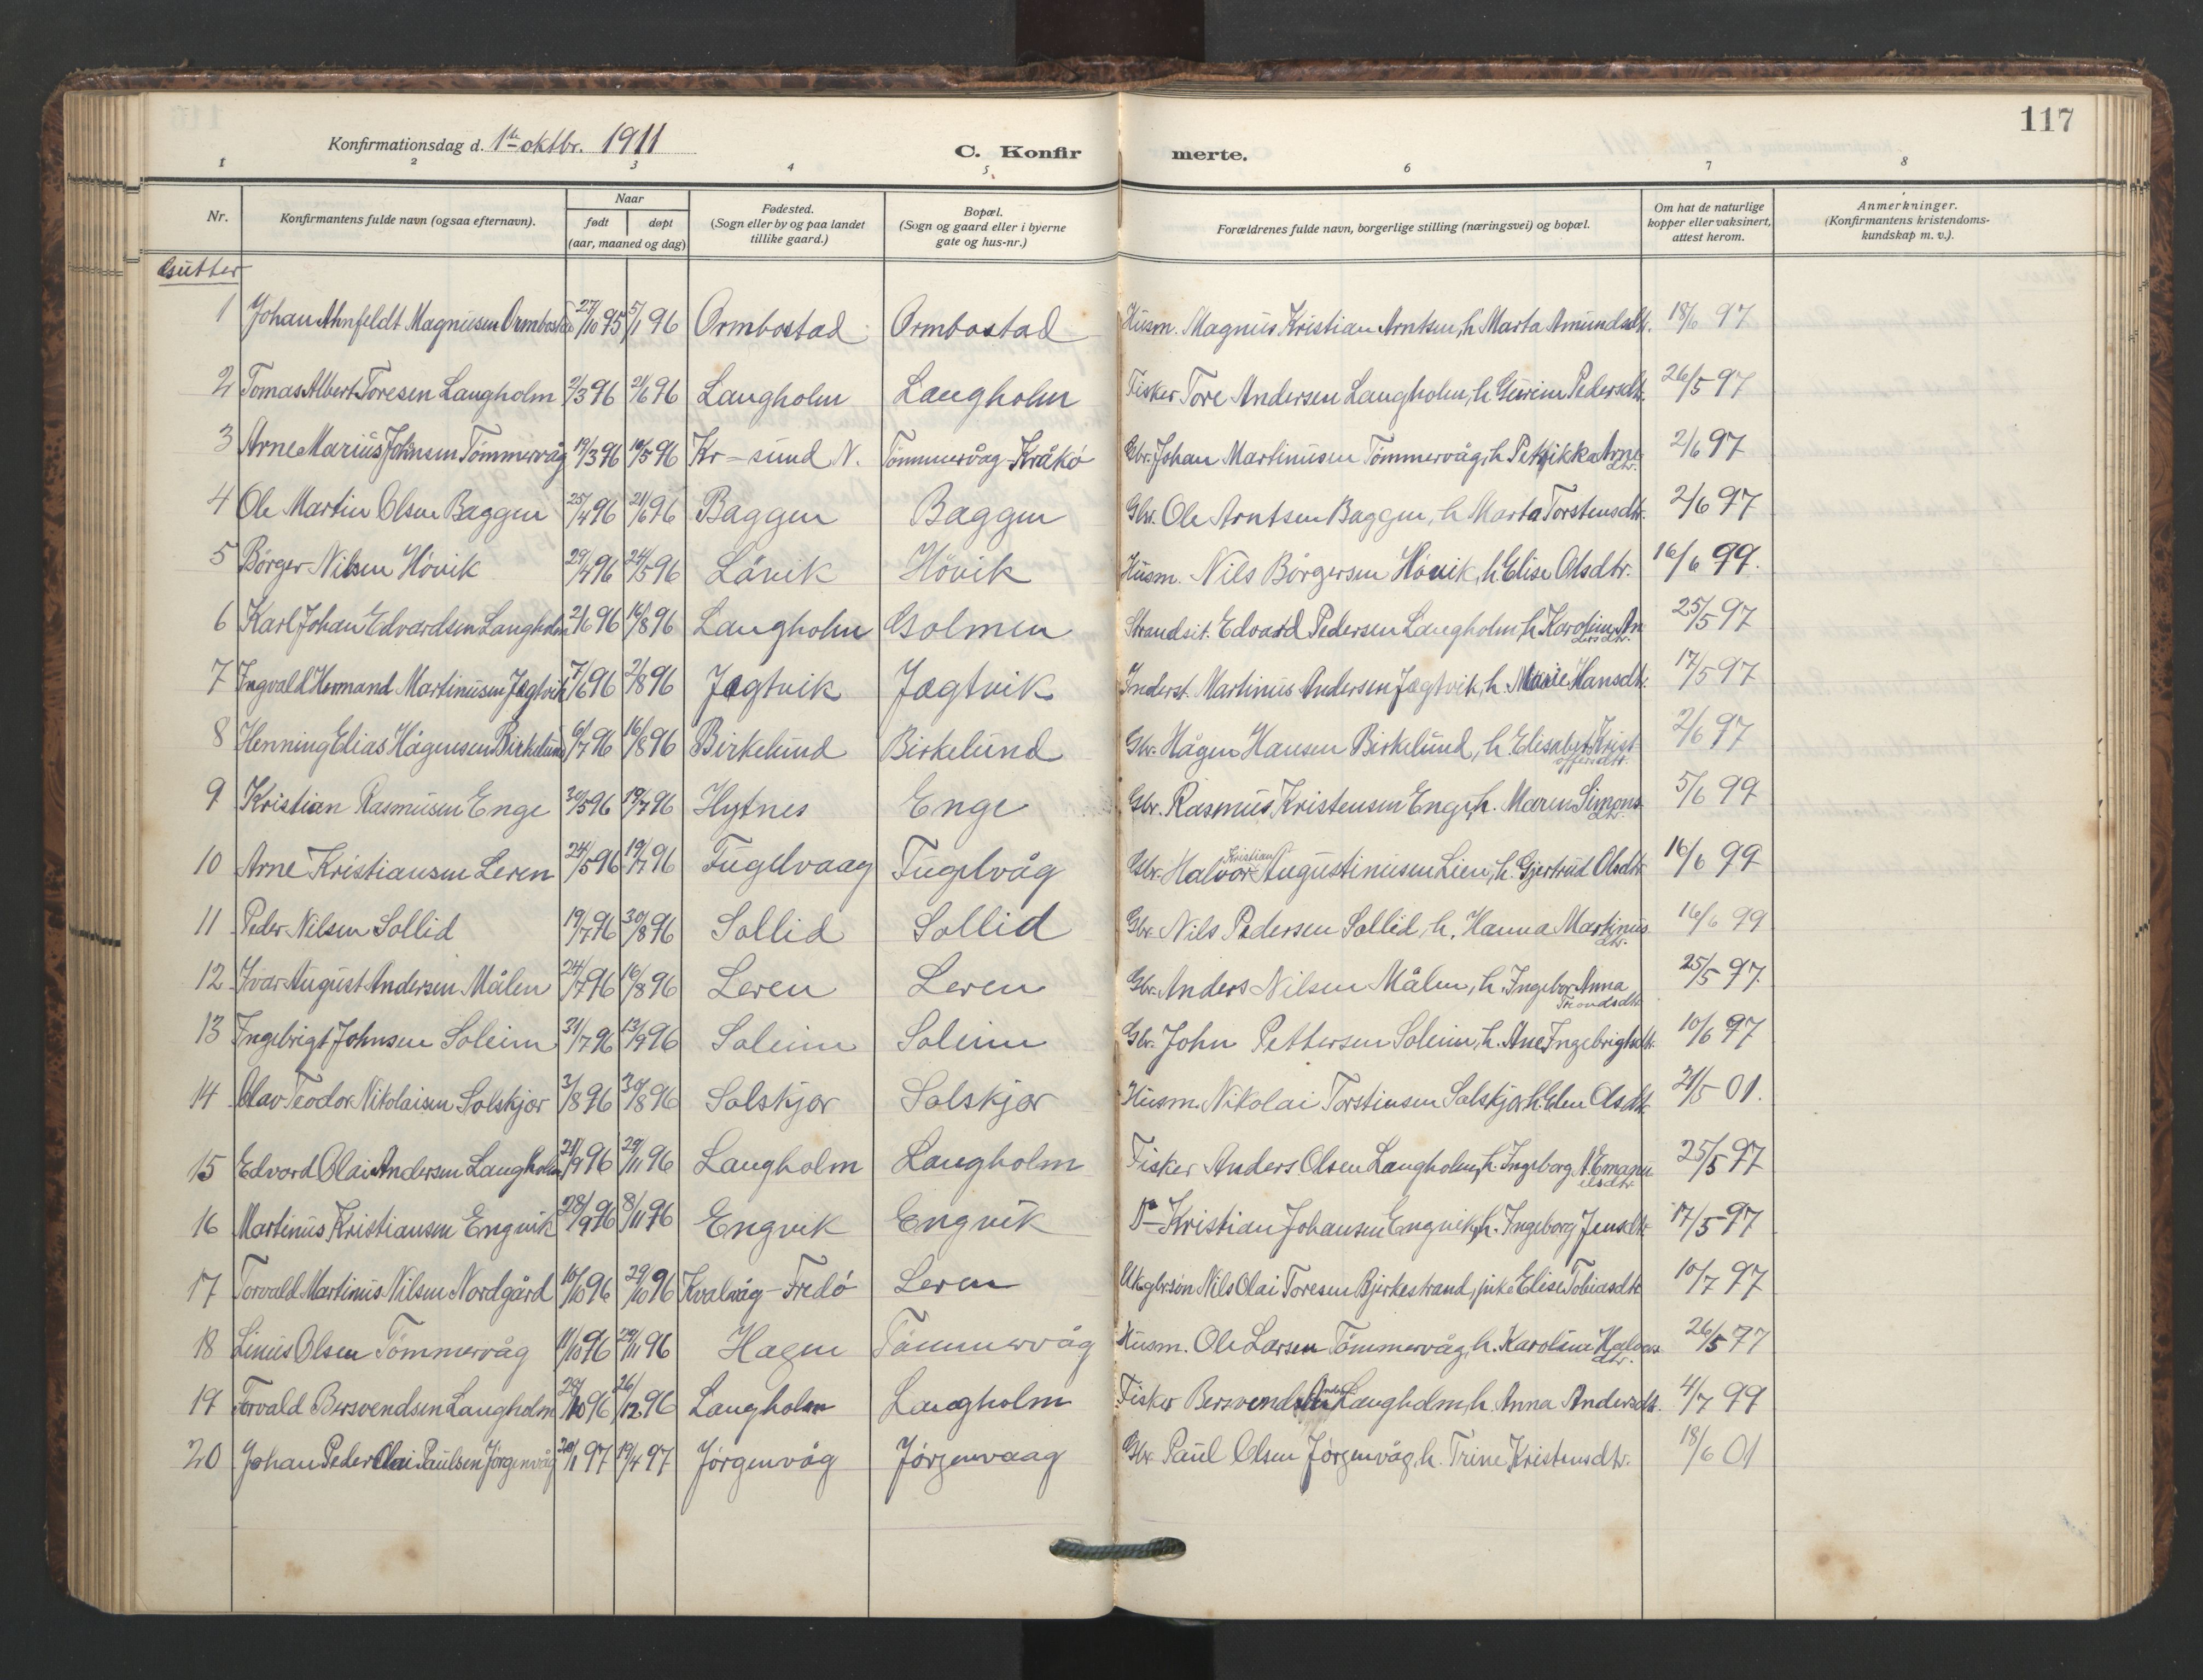 117
Konfirmationsdag d. 1ste oktbr. 1911 C. Konfirmerte.
1 2 3 4 5 6 7 8
Nr. Konfirmantens fulde navn (ogsaa efternavn). Naar født døpt (aar, maaned og dag) Fødested. (Sogn eller by og paa landet tillike gaard.) Bopæl. (Sogn og gaard eller i byerne gate og hus-nr.) Forældrenes fulde navn, borgerlige stilling (næringsvei) og bopæl. Om hat de naturlige kopper eller vaksinert, attest herom. Anmerkninger. (Konfirmantens kristendoms-kundskap m. v.).
Gutter
1 Johan Ahnfeldt Magnusen Ormbostad 27/10 95 5/1 96 Ormbostad Ormbostad Husm. Magnus Kristian Arntsen, h. Marta Amundsdtr. 18/6 97
2 Tomas Albert Toresen Langholm 2/3 96 21/6 96 Langholm Langholm Fisker Tore Andersen Langholm, h. Gurine Pedersdtr. 26/5 97
3 Arne Marius Johnsen Tömmervåg 19/3 96 10/5 96 Kr-sund N. Tömmervåg Kråkö Gbr. Johan Martinusen Tömmervåg, h. Petrikka Arnedtr. 2/6 97
4 Ole Martin Olsen Baggen 25/4 96 21/6 96 Baggen Baggen Gbr. Ole Arntsen Baggen, h. Marta Torstensdtr. 2/6 97
5 Börger Nilsen Hövik 29/4 96 24/5 96 Lövik Hövik Husm. Nils Börgersen Hövik, h. Elise Olsdtr. 16/6 99.
6 Karl Johan Edvardsen Langholm 2/6 96 16/8 96 Langholm Golmen Strandsit. Edvard Pedersen Langholm, h. Karoline Andersdtr. 25/5 97
7 Ingvald Hermand Martinusen Jægtvik 7/6 96 2/8 96 Jægtvik Jægtvik Inderst. Martinus Andersen Jægtvik, h. Marie Hansdtr. 17/5 97
8 Henning Elias Hågensen Birkelund 6/7 96 16/8 96 Birkelund Birkelund Gbr. Hågen Hansen Birkelund, h. Elisabet Kristoffersdtr. 2/6 97
9 Kristian Rasmusen Enge 30/5 96 19/7 96 Hytnes Enge Gbr. Rasmus Kristensen Enge, h. Maren Simonsdtr. 5/6 99
10 Arne Kristiansen Leren 24/5 96 19/7 96 Fugelvaag Fugelvåg Gbr. Halvor Kristian Augustinusen Lien, h. Gjertrud Olsdtr. 16/6 99
11 Peder Nilsen Sollid 19/7 96 30/8 96 Sollid Sollid Gbr. Nils Pedersen Sollid, h. Hanna Martinusdtr. 16/6 99
12 Ivar August Andersen Målen 24/7 96 16/8 96 Leren Leren Gbr. Anders Nilsen Målen, h. Ingebor Anna Trondsdtr. 25/5 97.
13 Ingebrigt Johnsen Soleim 31/7 96 13/9 96 Soleim Soleim Gbr. John Pettersen Soleim, h. Ane Ingebrigtsdtr. 10/6 97
14 Olav Teodor Nikolaisen Solskjær 3/8 96 30/8 96 Solskjær Solskjær Husm. Nikolai Torstensen Solskjær h. Elen Olsdtr. 21/5 01.
15 Edvard Olai Andersen Langholm 21/9 96 29/11 96 Langholm Langholm Fisker Anders Olsen Langholm, h. Ingeborg N. Emanuelsdtr. 25/5 97
16 Martinus Kristiansen Engvik 28/9 96 8/11 96 Engvik Engvik Do Kristian Johansen Engvik, h. Ingeborg Jensdtr. 17/5 97
17 Torvald Martinus Nilsen Nordgård 10/10 96 29/10 96 Kvalvåg-Fredö Leren Uk. gbr.sön Nils Olai Toresen Bjerkestrand, pike Elise Tobiasdtr. 10/7 97
18 Linus Olsen Tömmervåg 11/10 96 29/11 96 Hagen Tömmervåg Husm. Ole Larsen Tömmervåg, h. Karoline Halvorsdtr. 26/5 97
19 Torvald Bersvendsen Langholm 28/10 96 26/12 96 Langholm Langholm Fisker Bersvend Langholm, h. Anna Andersdtr. 4/7 99
20 Johan Peder Olai Paulsen Jörgenvåg 20/1 97 19/4 97 Jörgenvåg Jörgenvaag Gbr. Paul Olsen Jörgenvåg, h. Trine Kristensdtr. 18/6 01